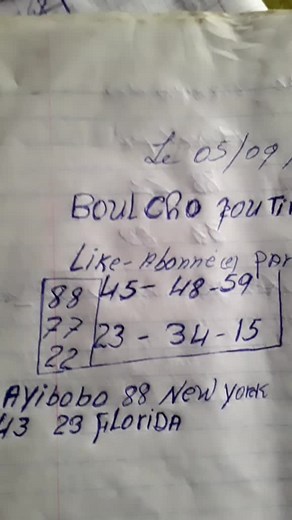 Le 05/09/
BOUL CHO POUTI
Like-Abonné(e) PAR
88 45 - 48 - 59
77 23 - 34 - 15
22
Ayibobo 88 New York
43 23 FLORIDA